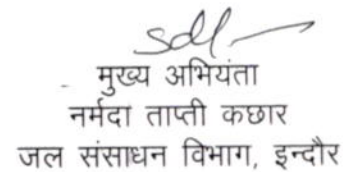 sd/-
मुख्य अभियंता
नर्मदा ताप्ती कछार
जल संसाधन विभाग, इन्दौर